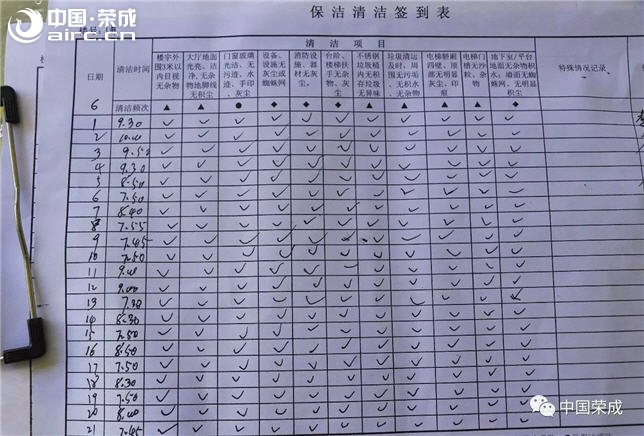 中国·荣成
airc.cn
保洁清洁签到表
日期
6
清洁时间
清洁频次
清洁项目
特殊情况记录
楼宇外围3米以内目视无杂物
大厅地面光亮、洁净,无杂物地脚线无积尘
门窗玻璃光洁、无污迹、水迹、手印、灰尘
设备、设施无灰尘或蜘蛛网
消防设施、器材无灰尘。
台阶、楼梯扶手无杂物、灰尘
不锈钢垃圾桶内无积存垃圾无异味
垃圾清运及时、周围无污垢、无积水、无杂物
电梯轿厢四壁、顶部无明显灰尘、印痕
电梯门槽无沙粒、杂物
地下室/平台地面无杂物积水;墙面无蜘蛛网、无明显积尘
▲ ▲ ● ◆ ◆ ◆ ▲ ▲ ▲ ▲ ◆
1 9.30
2 10.00
3 9.50
4 9.30
5 8.50
6 7.50
7 8.40
8 7.55
9 7.45
10 7.50
11 9.00
12 9.00
13 7.30
14 8.30
15 7.50
16 8.50
17 7.50
18 8.30
19 7.50
20 8.00
21 7.45
中国荣成